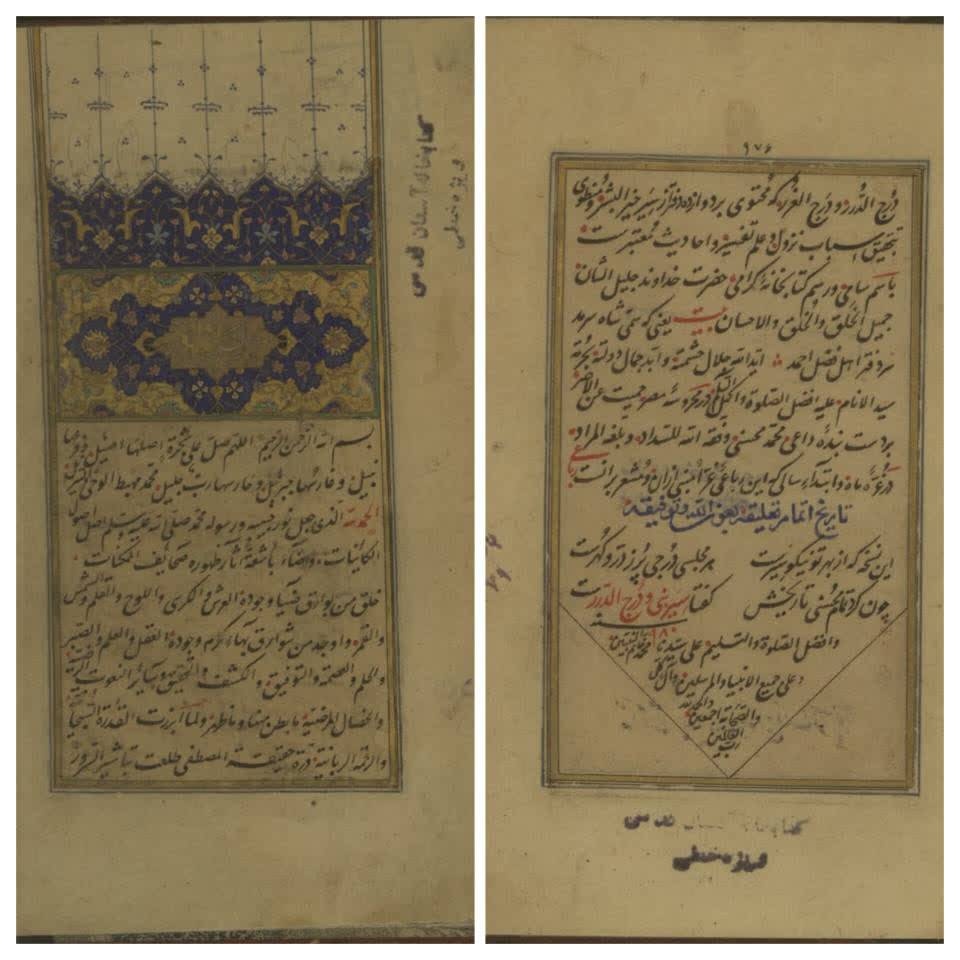 کتابخانه آستان قدسی
ویژه خطی
بسم الله الرحمن الرحیم اللهم صل علی شجرة اصلها اصیل
نبیل و غارسها جبرئیل و غارسها رب جلیل محمد مهبط الوحی
الحمد لله الذی جعل نور نبیه و رسوله محمد صلی الله علیه و سلم اصل اصول
الکائنات واضاء باشعة آثار ظهوره صحایف الممکنات
خلق من بوارق ضیاء وجوده العرش والکرسی واللوح والقلم والشمس
والقمر واوجد من شوارق بهاء کرم وجوده العقل والعلم والصبر
والحلم والعصمة والتوفیق والکشف والتحقیق وسائر النعوت
والخصال المرضیة ما بطن منها وما ظهر ولما ابرزت القدرة السبحانیة
والرحمة الربانیة درة حقیقة المصطفی طلعت تباشیر السرور
۱۷۶
درج الدرر و درج الغرر که محتوی بر دوازده دفتر از سیر خیر البشر و منطوی
بتحقیق اسباب نزول و علم تفسیر و احادیث معتبرست
باسم سامی و رسم کتابخانه گرامی حضرت خداوند جلیل الشان
جمیل الخلق والخلق والاحسان بیت یعنی که سمی شاه سرمد
سردفتر اهل فضل احمد ابد الله جلال حشمته و ابد جمال دولته بحرمة
سید الانام علیه افضل الصلوة واکمل السلام در محروسه مصر حمیت عن
بر دست بنده داعی محمد محسنی وفقه الله للسداد و بلغه المراد
در غره ماه و ابتداء سالی که این رباعی غرا مبنی از آن و مشعر بر آنست
تاریخ اتمام تعلیقه بعون الله و توفیقه
این نسخه که از بهر تو نیکو سیرست هر مجلسی درجی پر ز در و گهرست
چون کرد تمام محسنی تاریخش گفتا سیر نبی و درج الدررست
سنه ۱۸۰
وافضل الصلوة والتسلیم علی سیدنا محمد خاتم النبیین
وعلی جمیع الانبیاء والمرسلین وآل کل
والصحابة اجمعین والحمد لله
رب العالمین
کتابخانه آستان قدسی
ویژه خطی